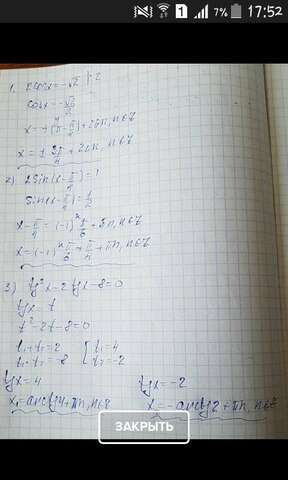 17:52
7%
1
1. 2cosx = -√2 | :2
cosx = -√2/2
x = ±(π - π/4) + 2πn, n∈Z
x = ± 3π/4 + 2πn, n∈Z
2) 2sin(x - π/4) = 1
sin(x - π/4) = 1/2
x - π/4 = (-1)ⁿ π/6 + πn, n∈Z
x = (-1)ⁿ π/6 + π/4 + πn, n∈Z
3) tg²x - 2tgx - 8 = 0
tgx = t
t² - 2t - 8 = 0
t₁ + t₂ = 2 { t₁ = 4
t₁ · t₂ = -8 t₂ = -2
tgx = 4 tgx = -2
x = arctg4 + πn, n∈Z x = -arctg2 + πn, n∈Z
ЗАКРЫТЬ